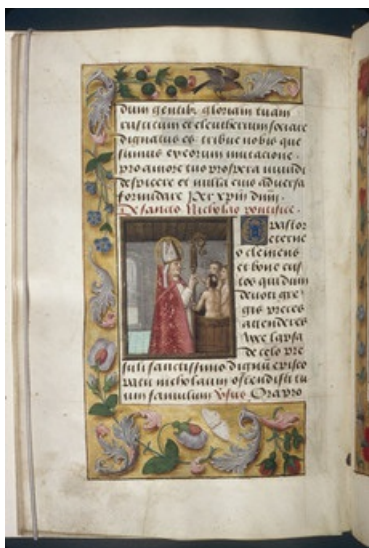 dum gentib; gloriam tuam
rusticum et eleutherium sociare
dignatus es. tribue nobis que
sumus eorum imitacione.
pro amore tuo prospera mundi
despicere et nulla eius aduersa
formidare Per xpm dnm.
De sancto Nicholao pontifice.
O pastor
eterne
o clemens
et bone cus
tos qui dum
deuoti gre
gis preces
attenderes
voce lapsa
de celo pre
suli sanctissimo dignum episco
patu nicholaum ostendisti tu
um famulum Vsus. Ora pro